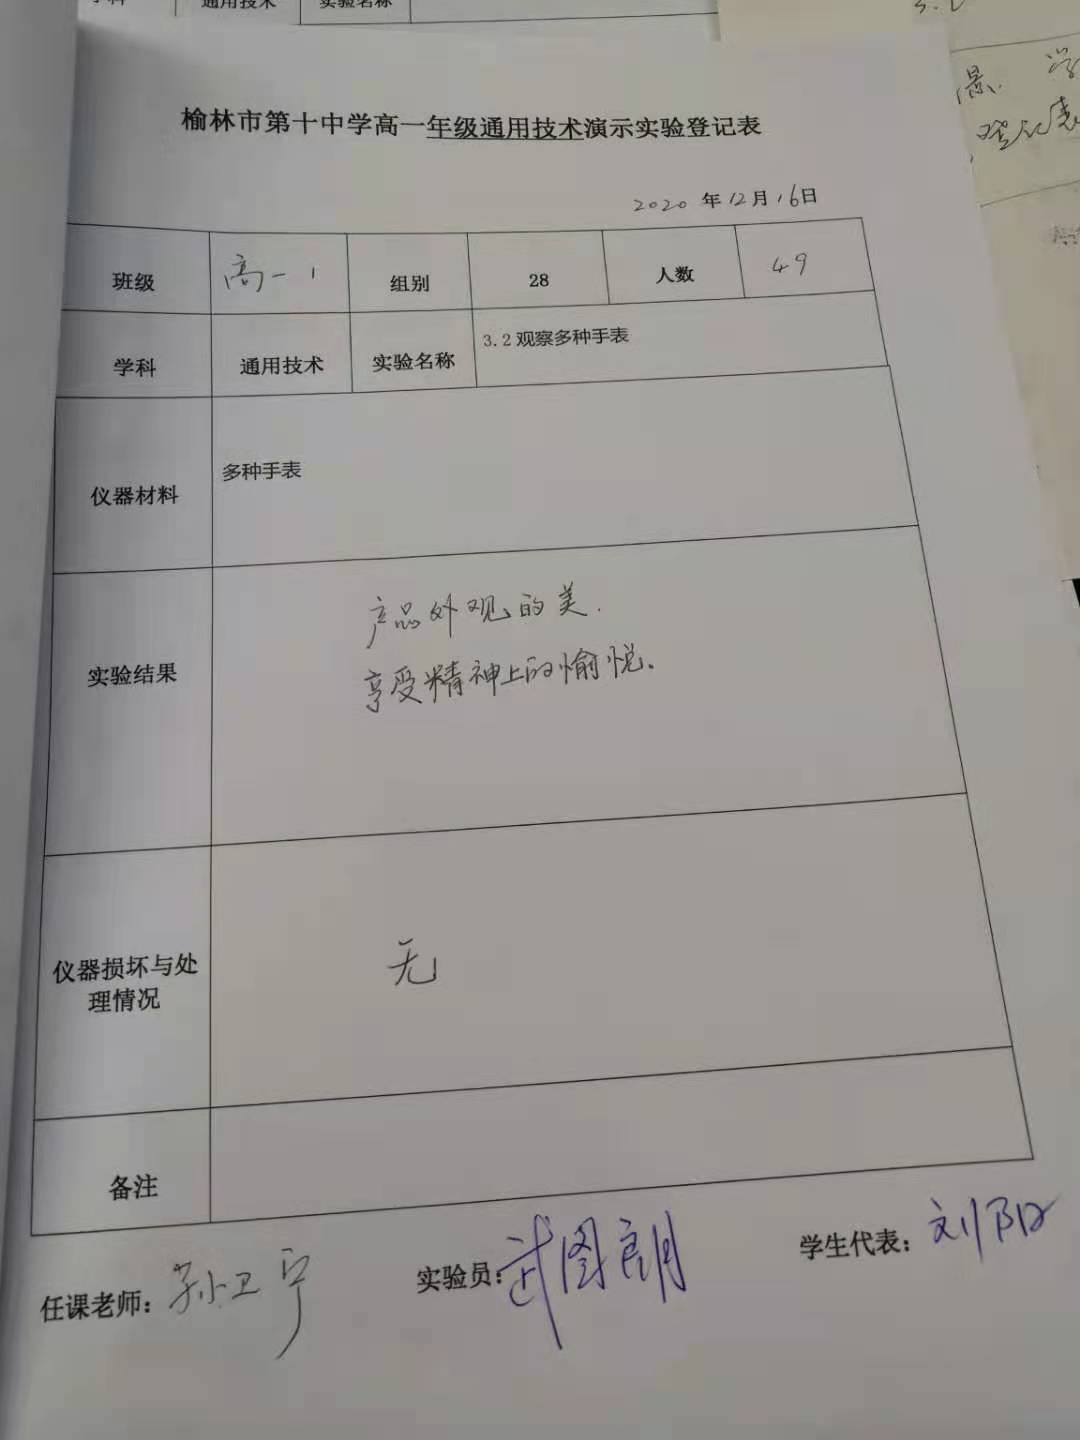 学科 通用技术 实验名称
榆林市第十中学高一年级通用技术演示实验登记表
2020 年 12 月 16 日
班级 高一 1 组别 28 人数 49
学科 通用技术 实验名称 3.2 观察多种手表
仪器材料 多种手表
实验结果
产品外观的美.
享受精神上的愉悦.
仪器损坏与处
理情况
无
备注
任课老师: 孙卫宁 实验员: 武图朗 学生代表: 刘阳
登记表